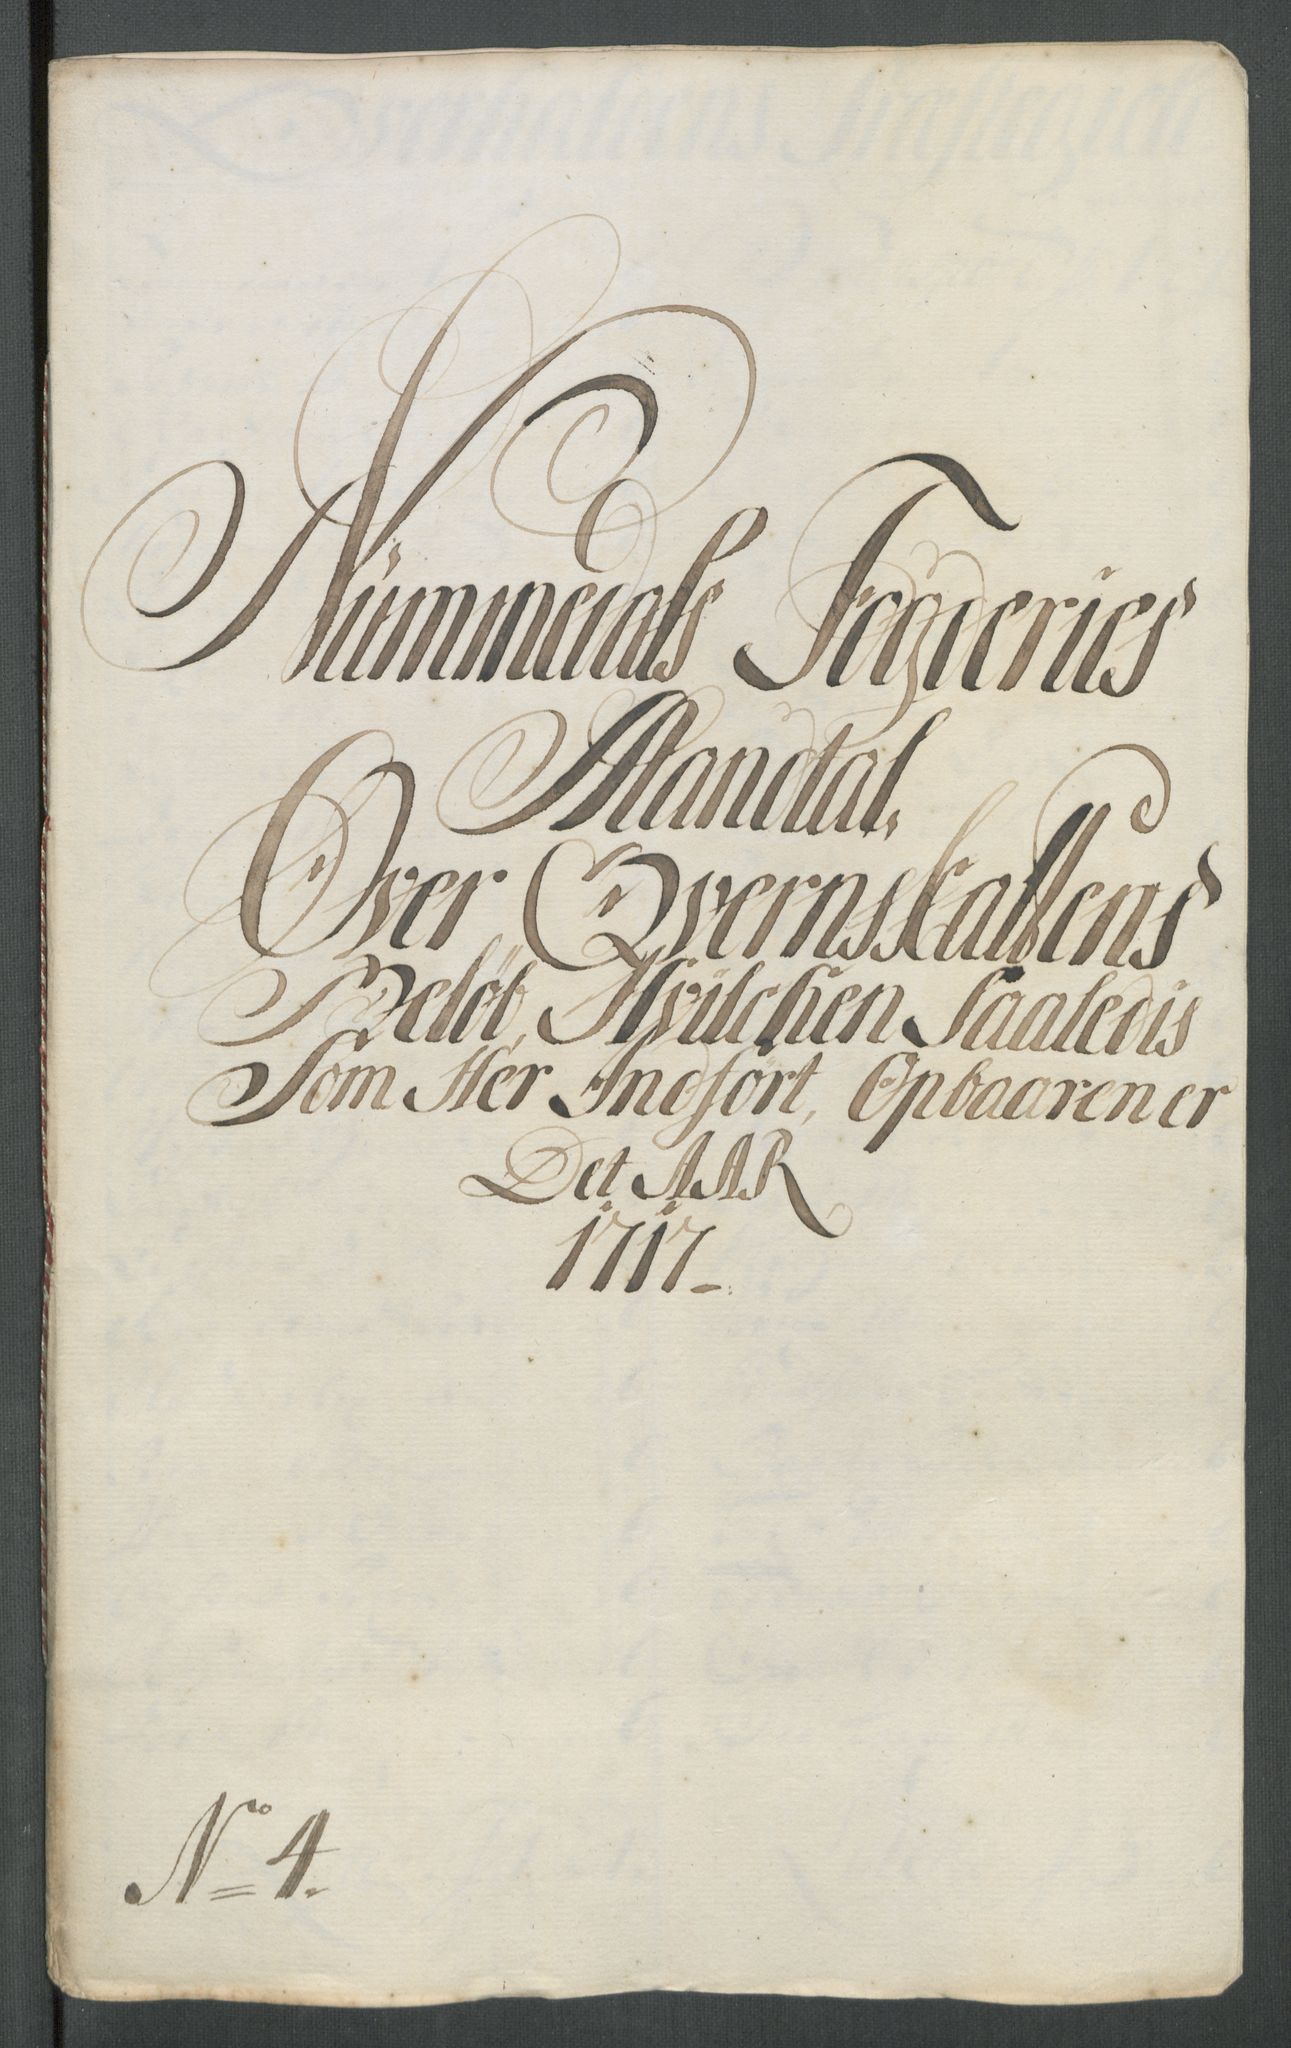 Nummedals Fogderies
Mandtal,
Over Qvernskattens
Beløb, Hvilchen Saaledis
Som Her Indført, Opbaaren er
Det AAR
1717
No 4.